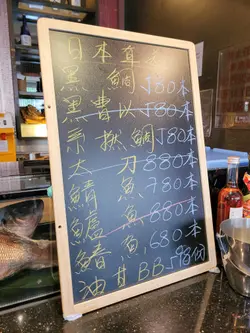 日本直
黑 鯛 J80本
黑曹以 J80本
糸撚鯛 J80本
太 刀 880本
鯖 魚 780本
鱸 魚 880本
鯖 魚 680本
油甘BB J98份